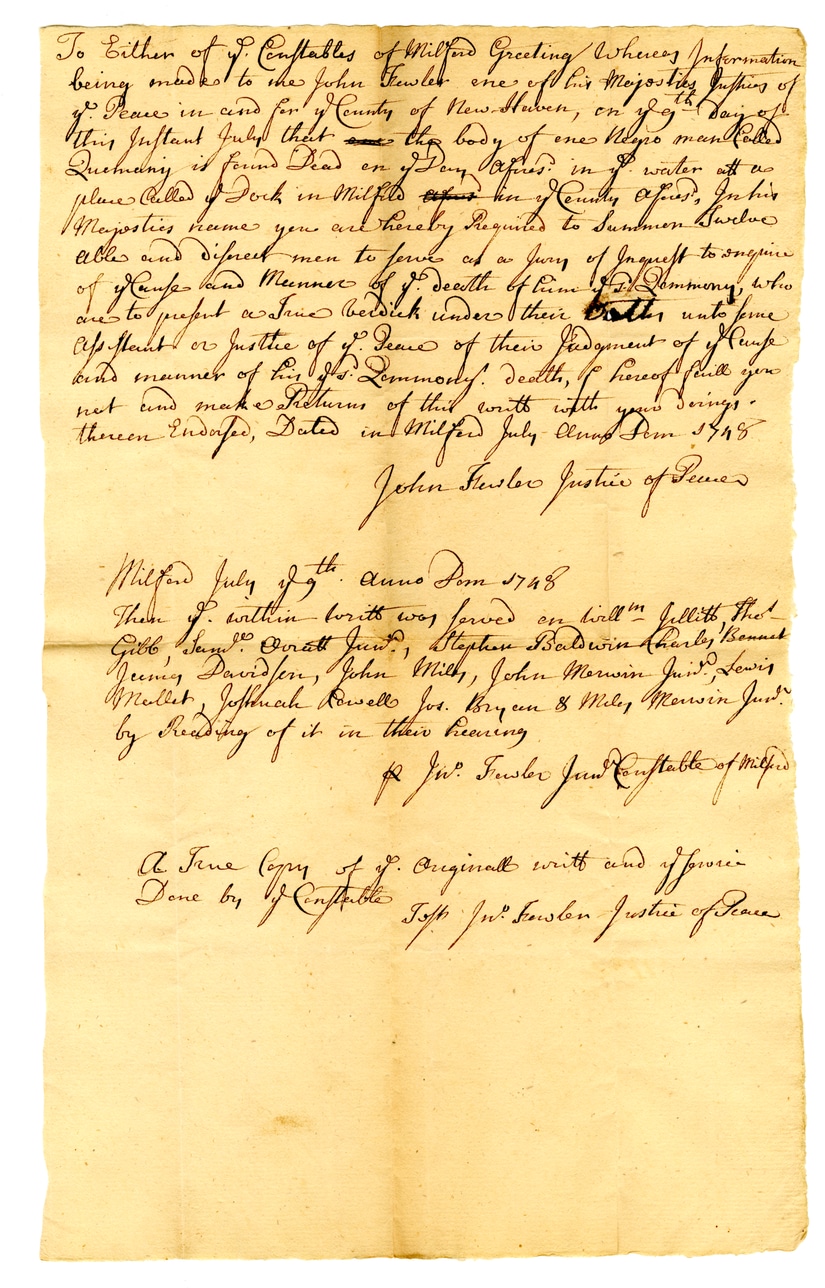 To Either of yᵉ. Constables of Milford Greeting Whereas Information
being made to me John Fowler one of his Majesties Justices of
yᵉ. Peace in and for yᵉ County of New-Haven, on yᵉ 9th Day of
this Instant July that one the body of one Negro man Called
Quemany is found Dead on yᵉ Day Aforesᵈ. in yᵉ. water att a
place Called yᵉ Dock in Milford Aforesᵈ in yᵉ County Aforesᵈ, In his
Majesties name you are hereby Required to Summon Twelve
able and discreet men to serve as a Jury of Inquest to enquire
of yᵉ Cause and Manner of yᵉ. death of him yᵉ sᵈ. Qommony, who
are to present a True Verdick under their oaths unto some
Assistant or Justice of yᵉ. Peace of their Judgment of yᵉ Cause
and manner of his yᵉ sᵈ. Qommonys. death, hereof faill you
not and make Returns of this writt with your doings
thereon Endorsed, Dated in Milford July Anno Dom 1748
John Fowler Justice of Peace
Milford July yᵉ 9th. Anno Dom 1748
Then yᵉ. within writt was served on Willᵐ Jillitt, Thoˢ
Gibb, Samˡˡ. Averitt Junʳ., Stephen Baldwin Charles Bennat
James Davidson, John Miles, John Merwin Junʳ., Lewis
Mallet, Joshuah Lowell Jos. Bryan & Miles Merwin Junʳ.
by Reading of it in their hearing
Jnᵒ. Fowler Junʳ Constable of Milford
A True Copy of yᵉ. Originall writt and yᵉ service
Done by yᵉ Constable
Test Jnᵒ. Fowler Justice of Peace